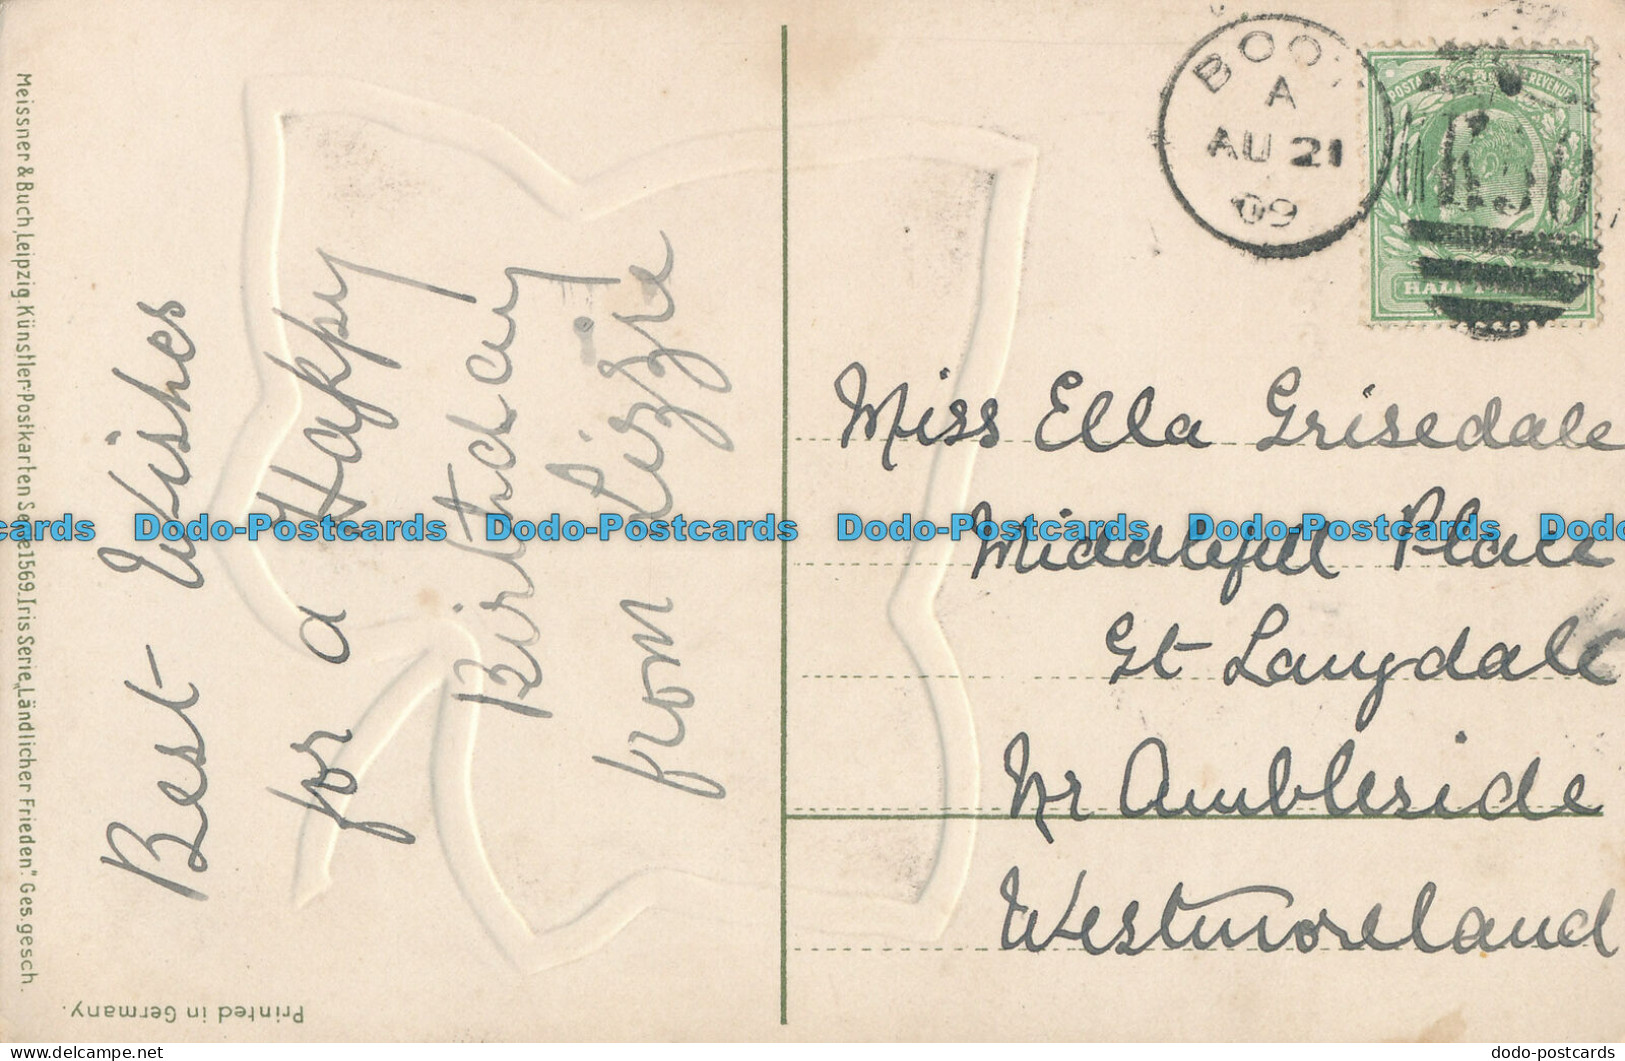 Meissner & Buch, Leipzig. Künstler-Postkarten Serie 1569. Iris Serie „Ländlicher Frieden." Ges. gesch.
Printed in Germany.
Best Wishes
for a Happy
Birthday
from Lizzie
BOOT
A
AU 21
09
POSTAGE REVENUE
HALF
Miss Ella Grisedale
Middlefell Place
Gt Langdale
Nr Ambleside
Westmoreland
Dodo-Postcards Dodo-Postcards Dodo-Postcards Dodo-Postcards Dodo-Postcards
dodo-postcards
delcampe.net